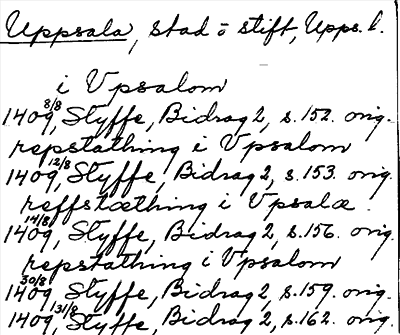 Uppsala, stad o stift, Upps. l.
i Vpsalom
1409 8/8, Styffe, Bidrag 2, s. 152. orig.
repstathing i Vpsalom
1409 12/8, Styffe, Bidrag 2, s. 153. orig.
reffstæthing i Vpsalæ.
1409 14/8, Styffe, Bidrag 2, s. 156. orig.
repstathing i Vpsalom
1409 30/8, Styffe, Bidrag 2, s. 159. orig.
1409 131/8, Styffe, Bidrag 2, s. 162. orig.